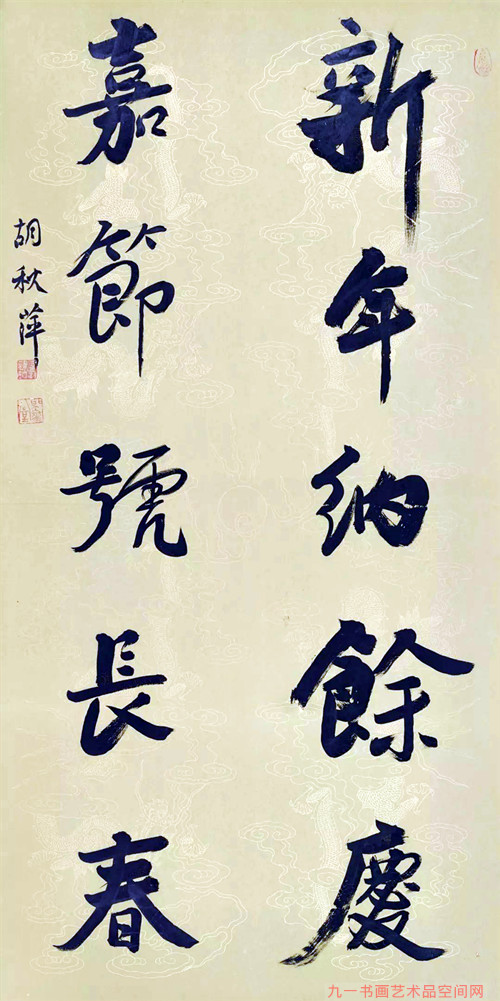 新年納餘慶
嘉節號長春
胡秋萍
九一书画艺术品空间网